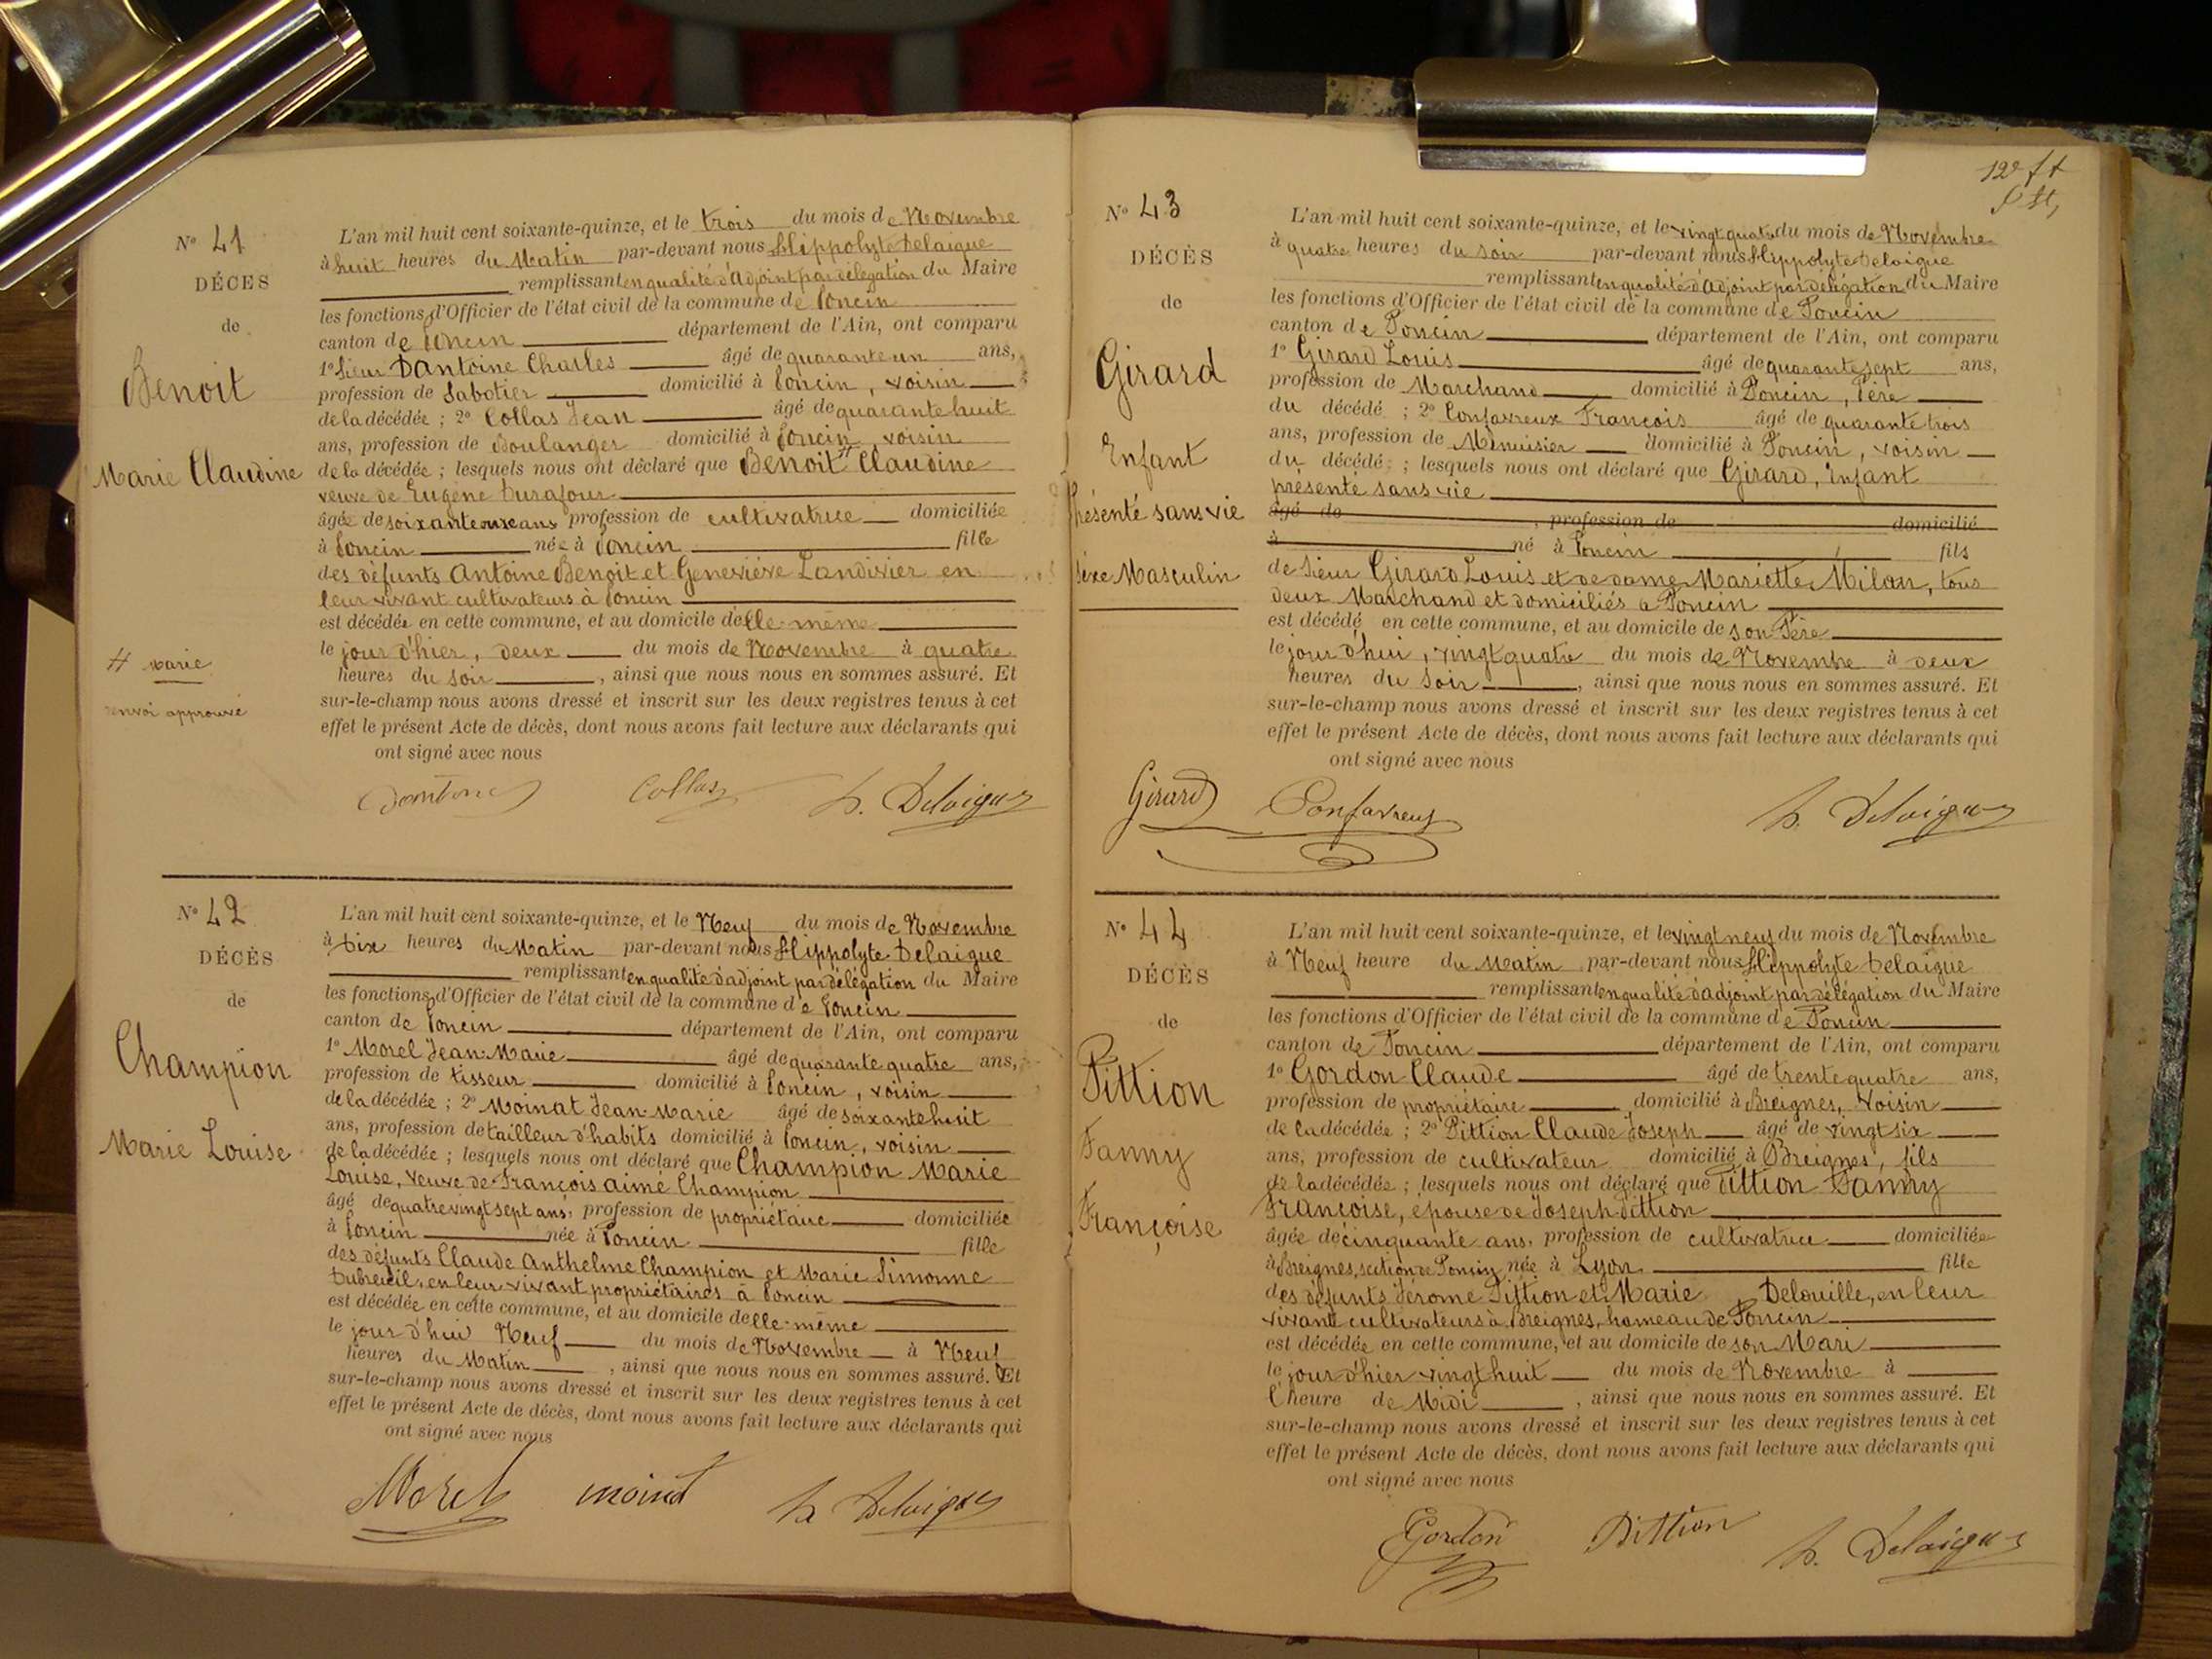 N° 41
DÉCES
de
Benoit
Marie Claudine
# Marie
renvoi approuvé
L'an mil huit cent soixante-quinze, et le trois du mois de Novembre
à huit heures du Matin par-devant nous Hippolyte Delaigue
remplissant en qualité d'adjoint par délégation du Maire
les fonctions d'Officier de l'état civil de la commune de Poncin
canton de Poncin département de l'Ain, ont comparu
1° Sieur Dantoine Charles âgé de quarante un ans,
profession de Sabotier domicilié à Poncin, voisin
de la décédée ; 2° Collas Jean âgé de quarante huit
ans, profession de Boulanger domicilié à Poncin, voisin
de la décédée ; lesquels nous ont déclaré que Benoit # Claudine
veuve de Eugène Durafour
âgée de soixante onze ans profession de cultivatrice domiciliée
à Poncin née à Poncin fille
des défunts Antoine Benoit et Geneviève Landivier en
leur vivant cultivateurs à Poncin
est décédée en cette commune, et au domicile d'elle-même
le jour d'hier, deux du mois de Novembre à quatre
heures du soir, ainsi que nous nous en sommes assuré. Et
sur-le-champ nous avons dressé et inscrit sur les deux registres tenus à cet
effet le présent Acte de décès, dont nous avons fait lecture aux déclarants qui
ont signé avec nous
Dantoine Collas h. Delaigue
N° 42
DÉCÈS
de
Champion
Marie Louise
L'an mil huit cent soixante-quinze, et le Neuf du mois de Novembre
à Dix heures du Matin par-devant nous Hippolyte Delaigue
remplissant en qualité d'adjoint par délégation du Maire
les fonctions d'Officier de l'état civil de la commune de Poncin
canton de Poncin département de l'Ain, ont comparu
1° Morel Jean-Marie âgé de quarante quatre ans,
profession de tisseur domicilié à Poncin, voisin
de la décédée ; 2° Moinat Jean-Marie âgé de soixante huit
ans, profession de tailleur d'habits domicilié à Poncin, voisin
de la décédée ; lesquels nous ont déclaré que Champion Marie
Louise, veuve de François aimé Champion
âgé de quatre vingt sept ans, profession de propriétaire domiciliée
à Poncin née à Poncin fille
des défunts Claude Anthelme Champion et Marie Simonne
Dubreuil, en leur vivant propriétaires à Poncin
est décédée en cette commune, et au domicile d'elle-même
le jour d'hui Neuf du mois de Novembre à Neuf
heures du Matin, ainsi que nous nous en sommes assuré. Et
sur-le-champ nous avons dressé et inscrit sur les deux registres tenus à cet
effet le présent Acte de décès, dont nous avons fait lecture aux déclarants qui
ont signé avec nous
Morel moinat h Delaigue
N° 43
DÉCÈS
de
Girard
Enfant
Présenté sans vie
Sexe Masculin
L'an mil huit cent soixante-quinze, et le vingt quatre du mois de Novembre
à quatre heures du soir par-devant nous Hippolyte Delaigue
remplissant en qualité d'adjoint par délégation du Maire
les fonctions d'Officier de l'état civil de la commune de Poncin
canton de Poncin département de l'Ain, ont comparu
1° Girard Louis âgé de quarante sept ans,
profession de Marchand domicilié à Poncin, Père
du décédé ; 2° Confavreux François âgé de quarante trois
ans, profession de Menuisier domicilié à Poncin, voisin
du décédé ; lesquels nous ont déclaré que Girard, Enfant
présenté sans vie
âgé de , profession de domicilié
à né à Poncin fils
de Sieur Girard Louis et de dame Mariette Milan, tous
deux Marchand et domiciliés à Poncin
est décédé en cette commune, et au domicile de son Père
le jour d'hui, vingt quatre du mois de Novembre à deux
heures du soir, ainsi que nous nous en sommes assuré. Et
sur-le-champ nous avons dressé et inscrit sur les deux registres tenus à cet
effet le présent Acte de décès, dont nous avons fait lecture aux déclarants qui
ont signé avec nous
Girard Confavreux h. Delaigue
N° 44
DÉCÈS
de
Pittion
Fanny
Françoise
L'an mil huit cent soixante-quinze, et le vingt neuf du mois de Novembre
à Neuf heure du Matin par-devant nous Hippolyte Delaigue
remplissant en qualité d'adjoint par délégation du Maire
les fonctions d'Officier de l'état civil de la commune de Poncin
canton de Poncin département de l'Ain, ont comparu
1° Gordon Claude âgé de trente quatre ans,
profession de propriétaire domicilié à Breignes, Voisin
de la décédée ; 2° Pittion Claude Joseph âgé de vingt six
ans, profession de cultivateur domicilié à Breignes, fils
de la décédée ; lesquels nous ont déclaré que Pittion Fanny
Françoise, épouse de Joseph Pittion
âgée de cinquante ans, profession de cultivatrice domiciliée
à Breignes, section de Poncin née à Lyon fille
des défunts Jérome Pittion et Marie Delouille, en leur
vivant cultivateurs à Breignes, hameau de Poncin
est décédée en cette commune, et au domicile de son Mari
le jour d'hier vingt huit du mois de Novembre à
l'heure de Midi, ainsi que nous nous en sommes assuré. Et
sur-le-champ nous avons dressé et inscrit sur les deux registres tenus à cet
effet le présent Acte de décès, dont nous avons fait lecture aux déclarants qui
ont signé avec nous
Gordon Pittion h. Delaigue